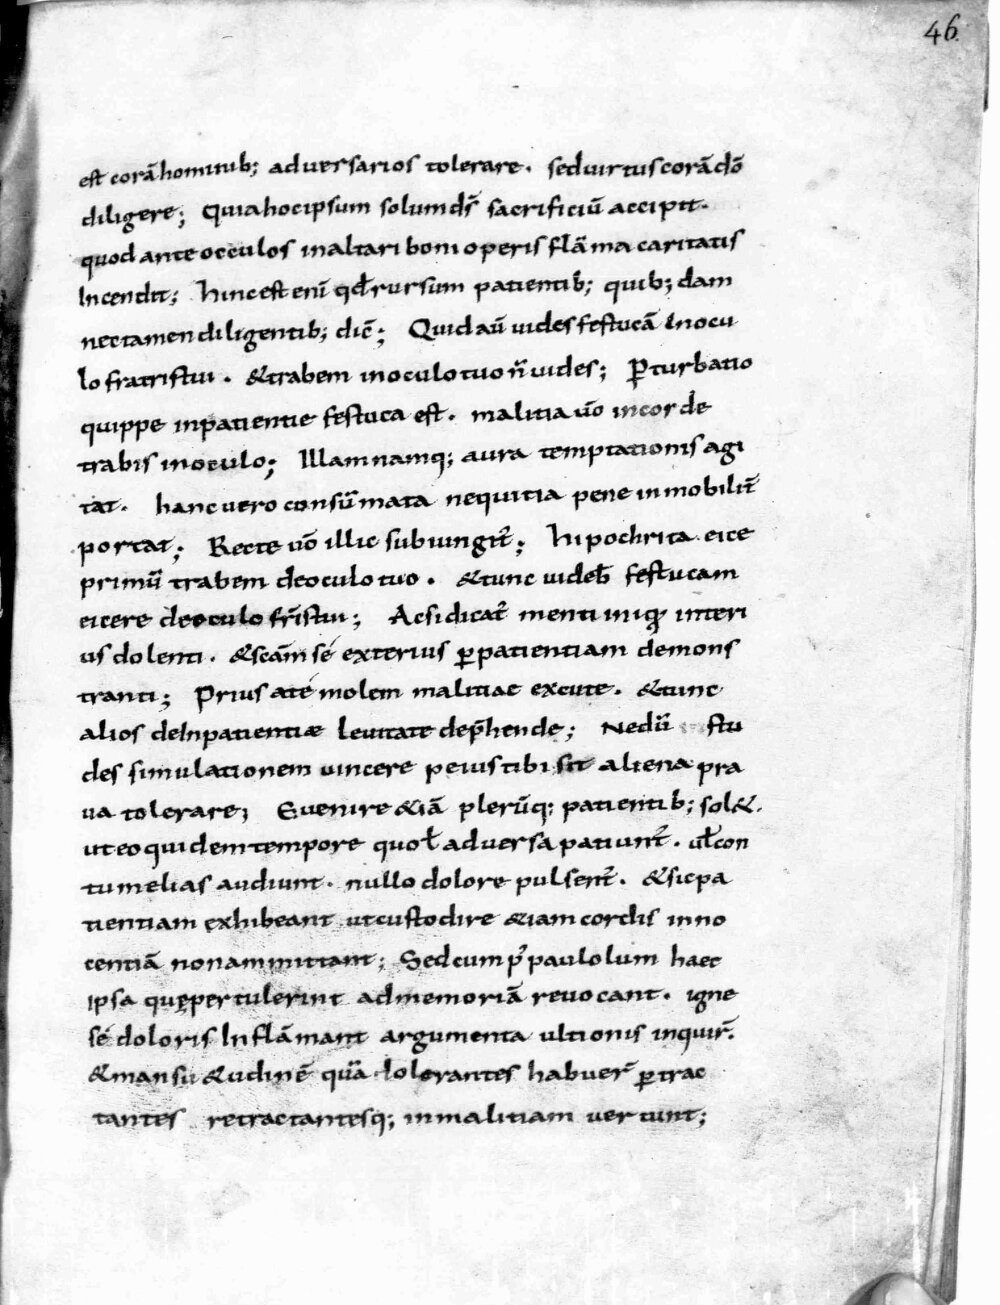 46.
est corā hominib; adversarios tolerare. sed virtus corā dō
diligere; Quia hoc ipsum solum ds̄ sacrificiū accipit.
quod ante occulos in altari boni operis flāma caritatis
Incendit; hinc est enī qđ rursum patientib; quib;dam
nec tamen diligentib; dic̄; Quid aū vides festucā in ocu
lo fratris tui. & trabem in oculo tuo n̄ vides; Ꝑturbatio
quippe inpatientie festuca est. malitia ūo in corde
trabis in oculo; Illam namq; aura temptationis agi
tat. hanc vero consūmata nequitia pene inmobilit̄
portat; Recte ūo illic subiungit̄; hipochrita eice
primū trabem de oculo tuo. & tunc videb̄ festucam
eicere de oculo fr̄is tui; Ac si dicat̄ menti iniq̨ interi
us dolenti. & scām sé exterius ꝑ patientiam demons
tranti; Prius a té molem malitiae excute. & tunc
alios de Inpatientiæ levitate dep̄hende; Ne dū stu
des simulationem vincere peius tibi sit aliena pra
va tolerare; Evenire &iā plerūq; patientib; sol&.
ut eo quidem tempore quo ł adversa patiunt̄. uł con
tumelias audiunt. nullo dolore pulsent̄. & sic pa
tientiam exhibeant ut custodire &iam cordis inno
centiā non ammittant; Sed cum p̄ paululum haec
ipsa quę pertulerint ad memoriā revocant. igne
sé doloris Inflāmant argumenta ultionis inquir̄.
& mansu&udinē quā tolerantes habuer̄ ꝑtrac
tantes retractantesq; in malitiam vertunt;